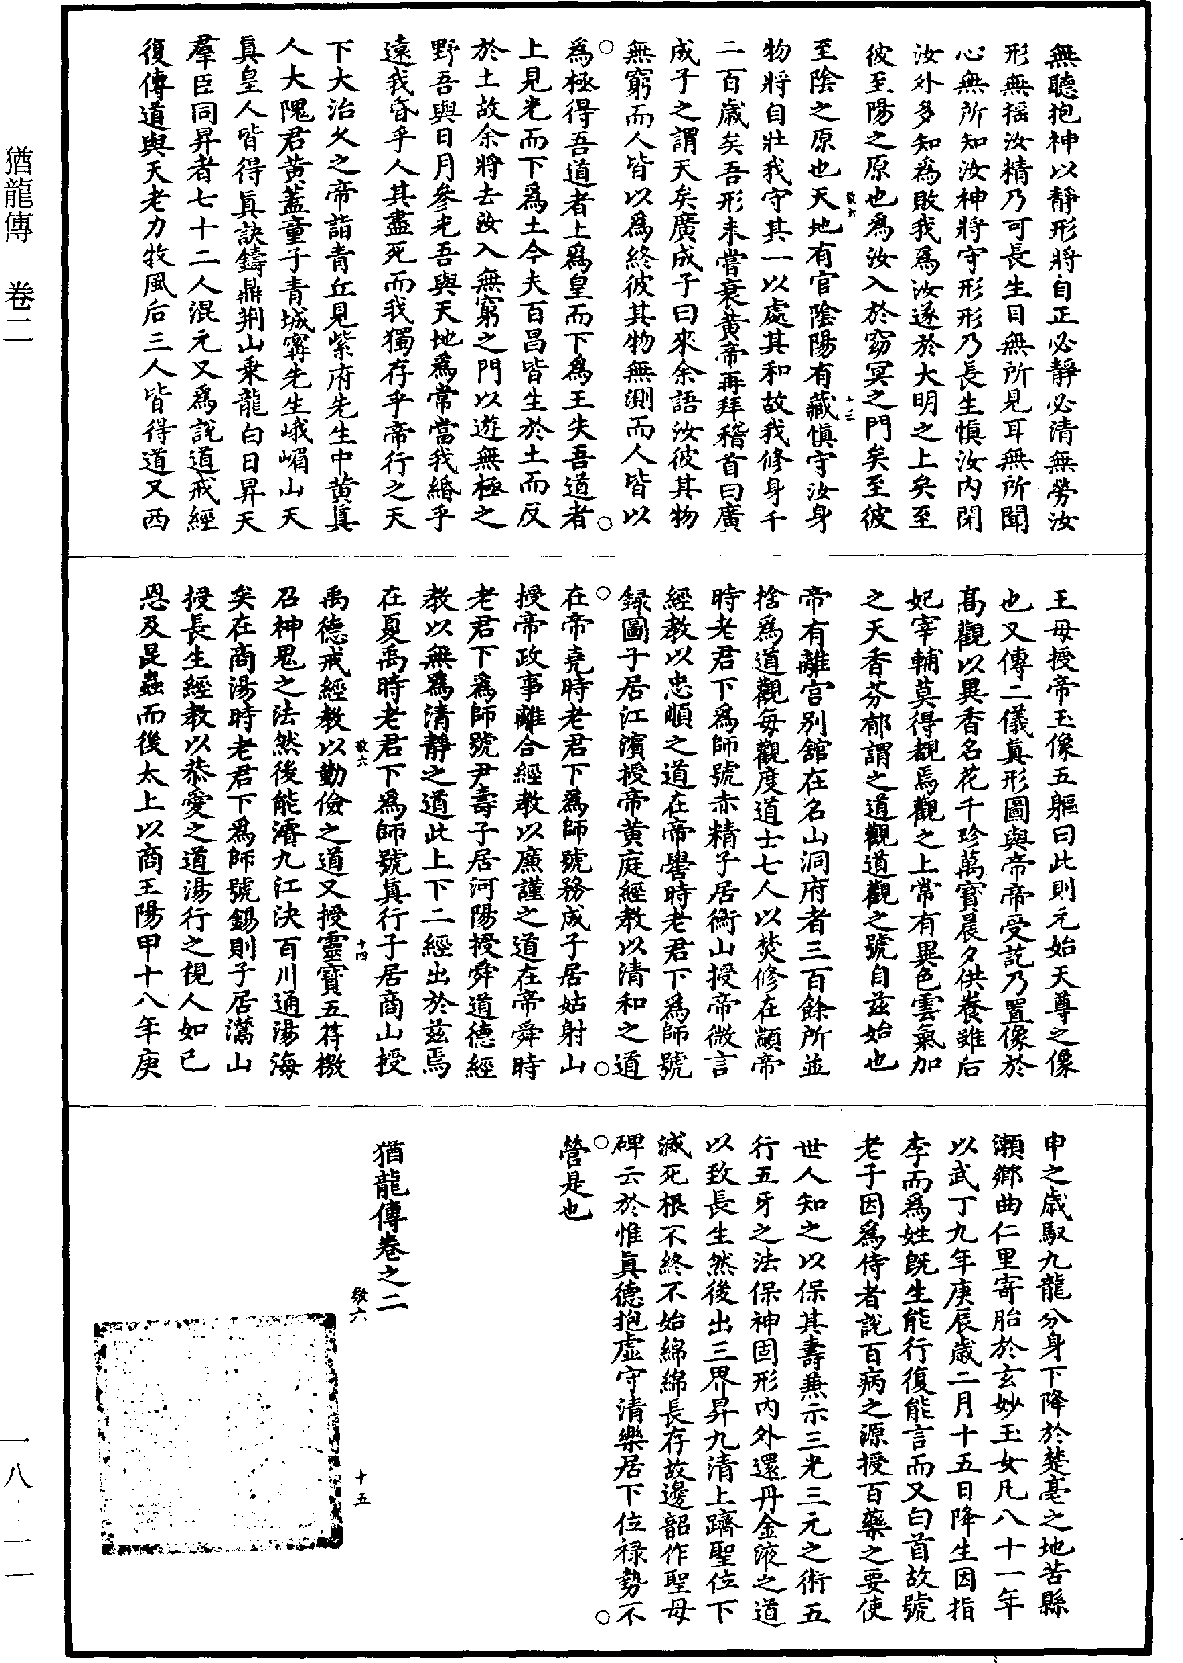 無聽抱神以靜形將自正必靜必清無勞汝
形無搖汝精乃可長生目無所見耳無所聞
心無所知汝神將守形形乃長生慎汝內閉
汝外多知為敗我為汝遂於大明之上矣至
彼至陽之原也為汝入於窈冥之門矣至彼
至陰之原也天地有官陰陽有藏慎守汝身
物將自壯我守其一以處其和故我修身千
二百歲矣吾形未嘗衰黃帝再拜稽首曰廣
成子之謂天矣廣成子曰來余語汝彼其物
無窮而人皆以爲終彼其物無測而人皆以
爲極得吾道者上爲皇而下爲王失吾道者
上見光而下爲土今夫百昌皆生於土而反
於土故余將去汝入無窮之門以遊無極之
野吾與日月參光吾與天地爲常當我緡乎
遠我昏乎人其盡死而我獨存乎帝行之天
下大治久之帝詣青丘見紫府先生中黃真
人大隗君黃蓋童子青城甯先生峨嵋山天
真皇人皆得真訣鑄鼎荆山乘龍白日昇天
羣臣同昇者七十二人混元又爲說道戒經
復傳道與天老力牧風后三人皆得道又西
王母授帝玉像五軀曰此則元始天尊之像
也又傳二儀真形圖與帝帝受訖乃置像於
高觀以異香名花千珍萬寶晨夕供養雖后
妃宰輔莫得覩焉觀之上常有異色雲氣加
之天香芬郁謂之道觀道觀之號自兹始也
帝有離宮別舘在名山洞府者三百餘所並
捨爲道觀每觀度道士七人以焚修在顓帝
時老君下爲師號赤精子居衡山授帝微言
經教以忠順之道在帝嚳時老君下爲師號
録圖子居江濱授帝黃庭經教以清和之道
在帝堯時老君下爲師號務成子居姑射山
授帝政事離合經教以廉謹之道在帝舜時
老君下爲師號尹壽子居河陽授舜道德經
教以無爲清靜之道此上下二經出於兹焉
在夏禹時老君下爲師號真行子居商山授
禹德戒經教以勤儉之道又授靈寶五符檄
召神鬼之法然後能濬九江決百川通湯海
矣在商湯時老君下爲師號錫則子居潛山
授長生經教以恭愛之道湯行之視人如己
恩及昆蟲而後太上以商王陽甲十八年庚
申之歲馭九龍分身下降於楚亳之地苦縣
瀨鄉曲仁里寄胎於玄妙玉女凡八十一年
以武丁九年庚辰歲二月十五日降生因指
李而爲姓旣生能行復能言而又白首故號
老子因爲侍者說百病之源授百藥之要使
世人知之以保其壽兼示三光三元之術五
行五牙之法保神固形內外還丹金液之道
以致長生然後出三界昇九清上躋聖位下
滅死根不終不始綿綿長存故邊韶作聖母
碑云於惟真德抱虛守清樂居下位禄勢不
營是也
猶龍傳卷之二
敬六
十三
敬六
十四
敬六
十五
猶龍傳 卷二
一八-一一